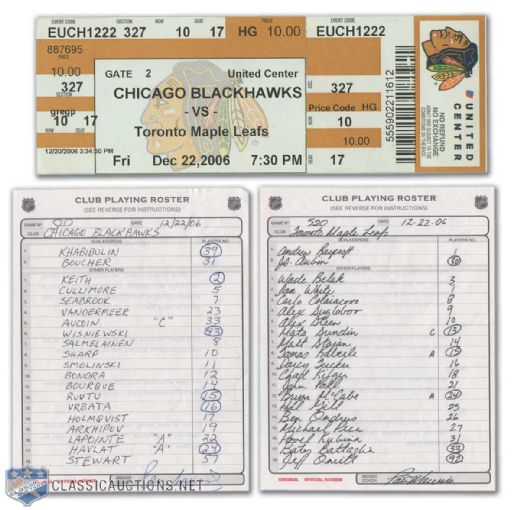 EVENT CODE SECTION ROW SEAT PRICE EVENT CODE
EUCH1222 327 10 17 HG 10.00 EUCH1222
887695
10.00
327
gregp
10 17
12/20/2006
GATE 2 United Center
CHICAGO BLACKHAWKS
- VS -
Toronto Maple Leafs
Fri Dec 22,2006 7:30 PM
327
Price Code HG
10 10.00
17
555902211612
NO REFUND
NO EXCHANGE
UNITED
CENTER
CLUB PLAYING ROSTER
(SEE REVERSE FOR INSTRUCTIONS)
GAME Nº 520 12/22/06
CLUB CHICAGO BLACKHAWKS
GOALKEEPERS PLAYERS NO.
KHABIBULIN 39
BOUCHER 31
OTHER PLAYERS
KEITH 2
CULLIMORE 5
SEABROOK 7
VANDERMEER 23
AUCOIN "C" 33
WISNIEWSKI 43
SALMELAINEN 8
SHARP 10
SMOLINSKI 11
BONDRA 12
BOURQUE 14
RUUTU 15
VRBATA 16
HOLMQVIST 17
ARKHIPOV 19
LAPOINTE "A" 22
HAVLAT "A" 24
STEWART 57
CLASSICAUCTIONS.NET
CLUB PLAYING ROSTER
(SEE REVERSE FOR INSTRUCTIONS)
GAME Nº 520 12.22.06
CLUB Toronto Maple Leafs
GOALKEEPERS PLAYERS NO.
Andrew Raycroft
J.S. Aubin 30
OTHER PLAYERS
Wade Belak 3
Ian White 7
Carlo Colaiacovo 8
Alex Suglobov 9
Alex Steen 10
Mats Sundin C 13
Matt Stajan 14
Tomas Kaberle A 15
Darcy Tucker 16
Chad Kilger 18
John Pohl 21
Bryan McCabe A 24
Hal Gill 25
Ben Ondrus 26
Michael Peca 27
Pavel Kubina 31
Bates Battaglia 33
Jeff O'Neill 92
ORIGINAL OFFICIAL SCORER SIGNED COACH